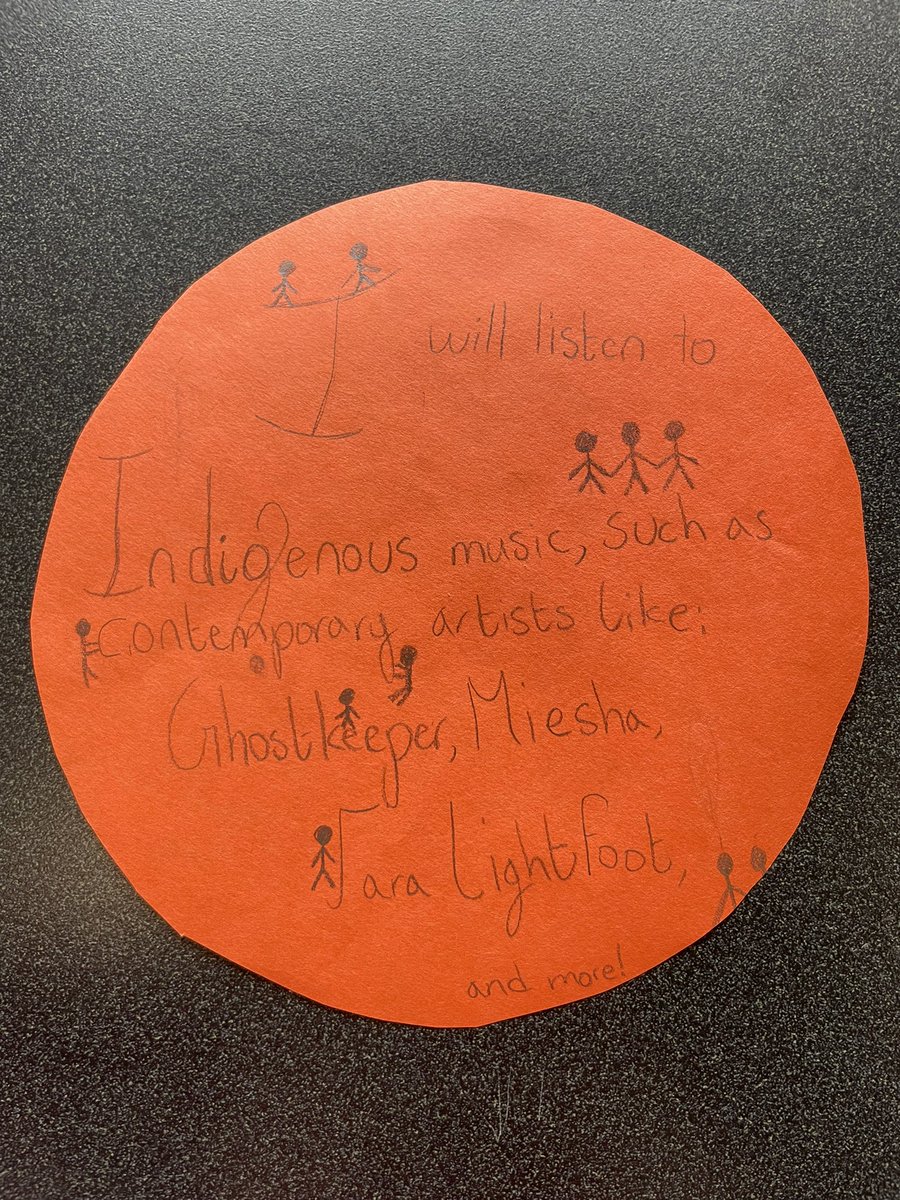 I will listen to
Indigenous music, such as
contemporary artists like:
Ghostkeeper, Miesha,
Tara Lightfoot,
and more!